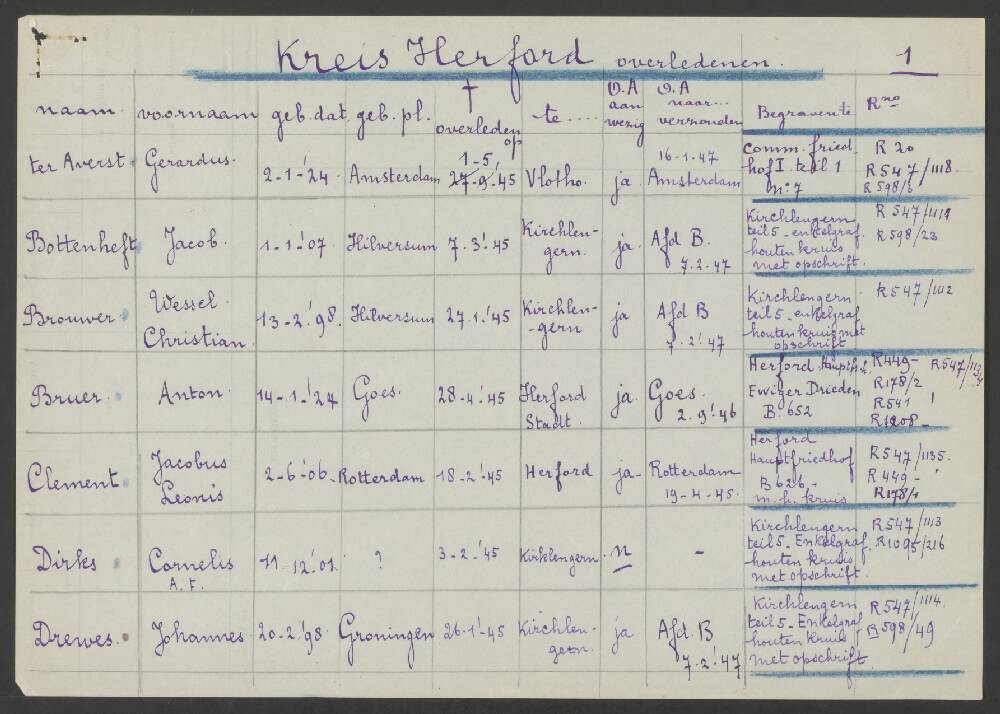 Kreis Herford overledenen. 1
naam voornaam geb.dat. geb.pl. † overleden op te .... O.A aanwezig O.A naar... verzonden Begraven te Rno
ter Averst Gerardus. 2-1-'24 Amsterdam 1-5 27-9-'45 Vlotho. ja 16-1-47 Amsterdam
comm. fried
hof I teil 1
n:7
R 20
R547/1118
R598/5
Bottenheft Jacob. 1-1-'07 Hilversum 7.3.'45 Kirchlen-
gern. ja Afd B.
7.2-'47
Kirchlengern
teil 5_enkelgraf
houten kruis
met opschrift.
R547/1111
R598/23
Brouwer Wessel
Christian 13-2.'98. Hilversum 27.1.'45 Kirchlen-
-gern ja Afd B
7.2!47
Kirchlengern
teil 5_enkelgraf
houten kruis met
opschrift
R547/1112
Bruer Anton 14-1-'24 Goes. 28-4.'45 Herford
Stadt. ja Goes.
2.9!46
Herford Haupth.
Ewiger Drieden
B.652
R449- R547/113
R178/2
R541
R1208-
Clement Jacobus
Leonis 2-6-'06 Rotterdam 18-2-'45 Herford ja Rotterdam
19-4-45.
Herford
Hauptfriedhof
B 626,-
m.h. kruis
R547/1135.
R449-
R178/1
Dirks Cornelis
A.F. 11-12.'01 ? 3-2-'45 Kirklengern n -
Kirchlengern
teil 5_Enkelgraf
houten kruis
met opschrift.
R547/1113
R1095/216
Drewes. Johannes 20-2.'98 Groningen 26-1-'45 Kirchlen-
gern. ja Afd. B
7-2!47
Kirchlengern
teil 5_Enkelgraf
houten kruis
met opschrift.
R547/1114.
R598/49